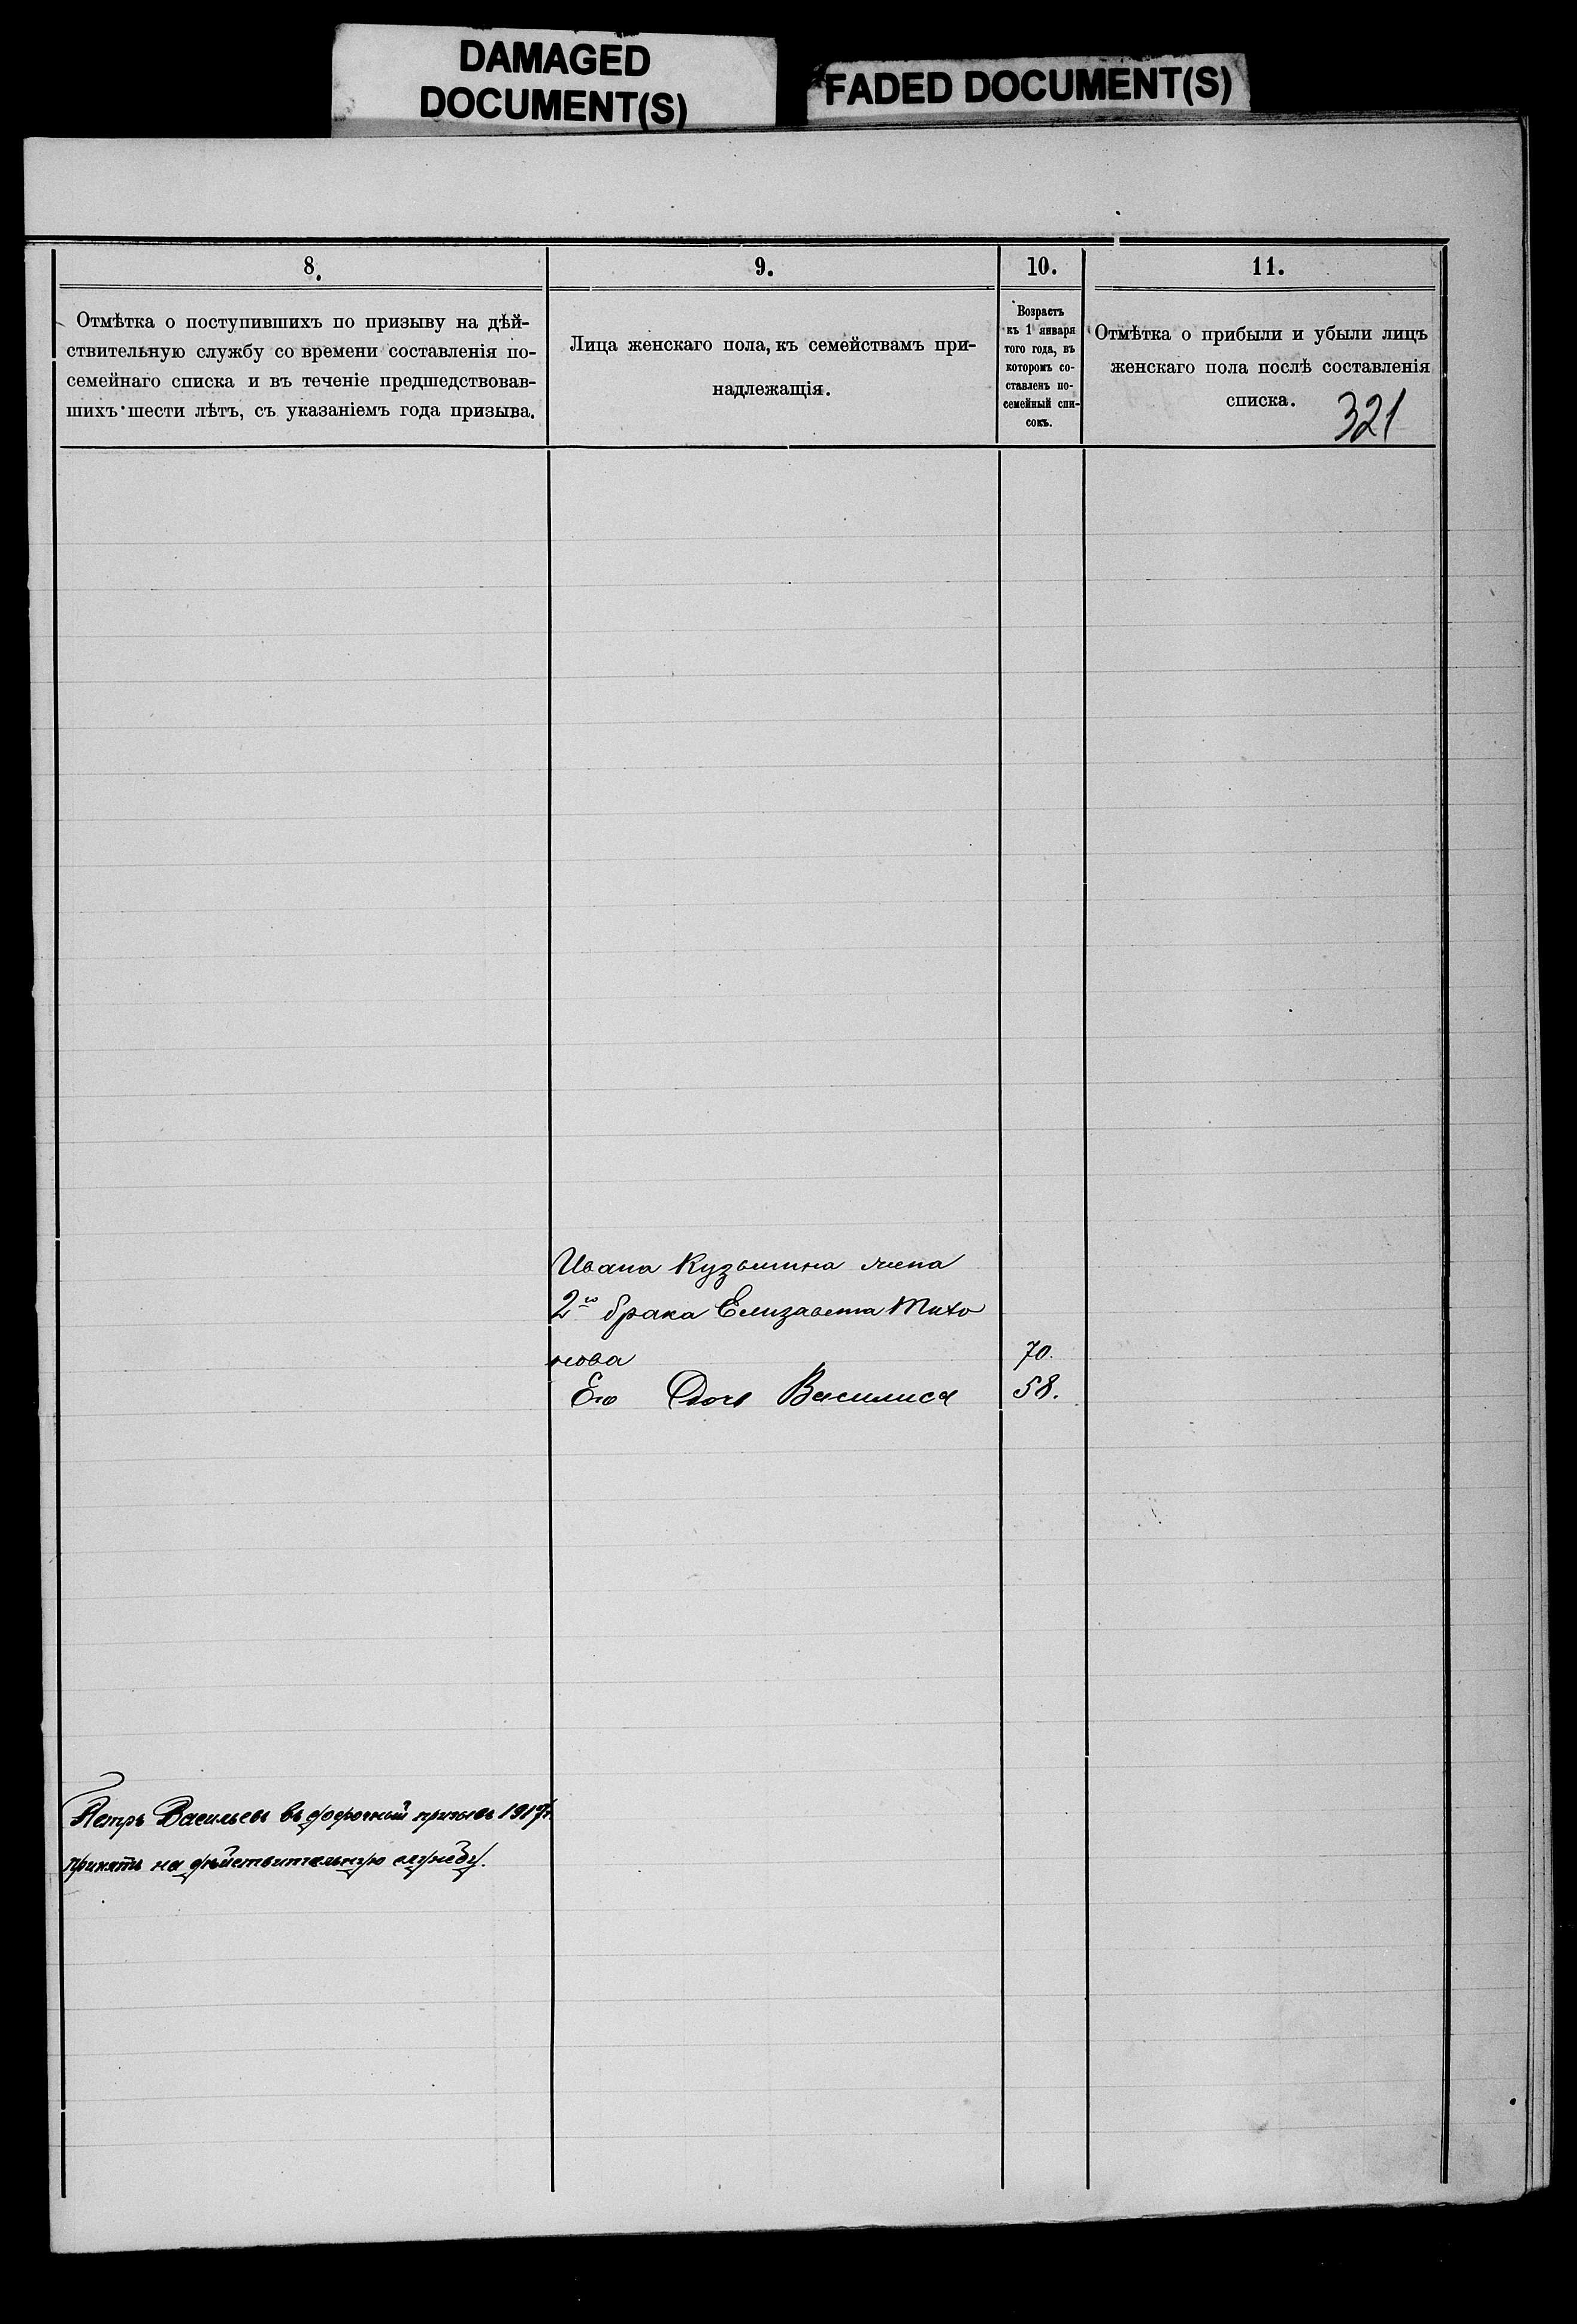 DAMAGED
DOCUMENT(S)
FADED DOCUMENT(S)
8.
Отмѣтка о поступившихъ по призыву на дѣй-
ствительную службу со времени составленія по-
семейнаго списка и въ теченіе предшедствовав-
шихъ шести лѣтъ, съ указаніемъ года призыва.
9.
Лица женскаго пола, къ семействамъ при-
надлежащія.
10.
Возрастъ
къ 1 января
того года, въ
которомъ со-
ставленъ по-
семейный спи-
сокъ.
11.
Отмѣтка о прибыли и убыли лицъ
женскаго пола послѣ составленія
списка.
321
Ивана Кузьмина жена
2го брака Елизавета Тихо
нова 70.
Его Дочь Василиса 58.
Петръ Васильевъ въ досрочный призывъ 1917г.
принятъ на дѣйствительную службу.